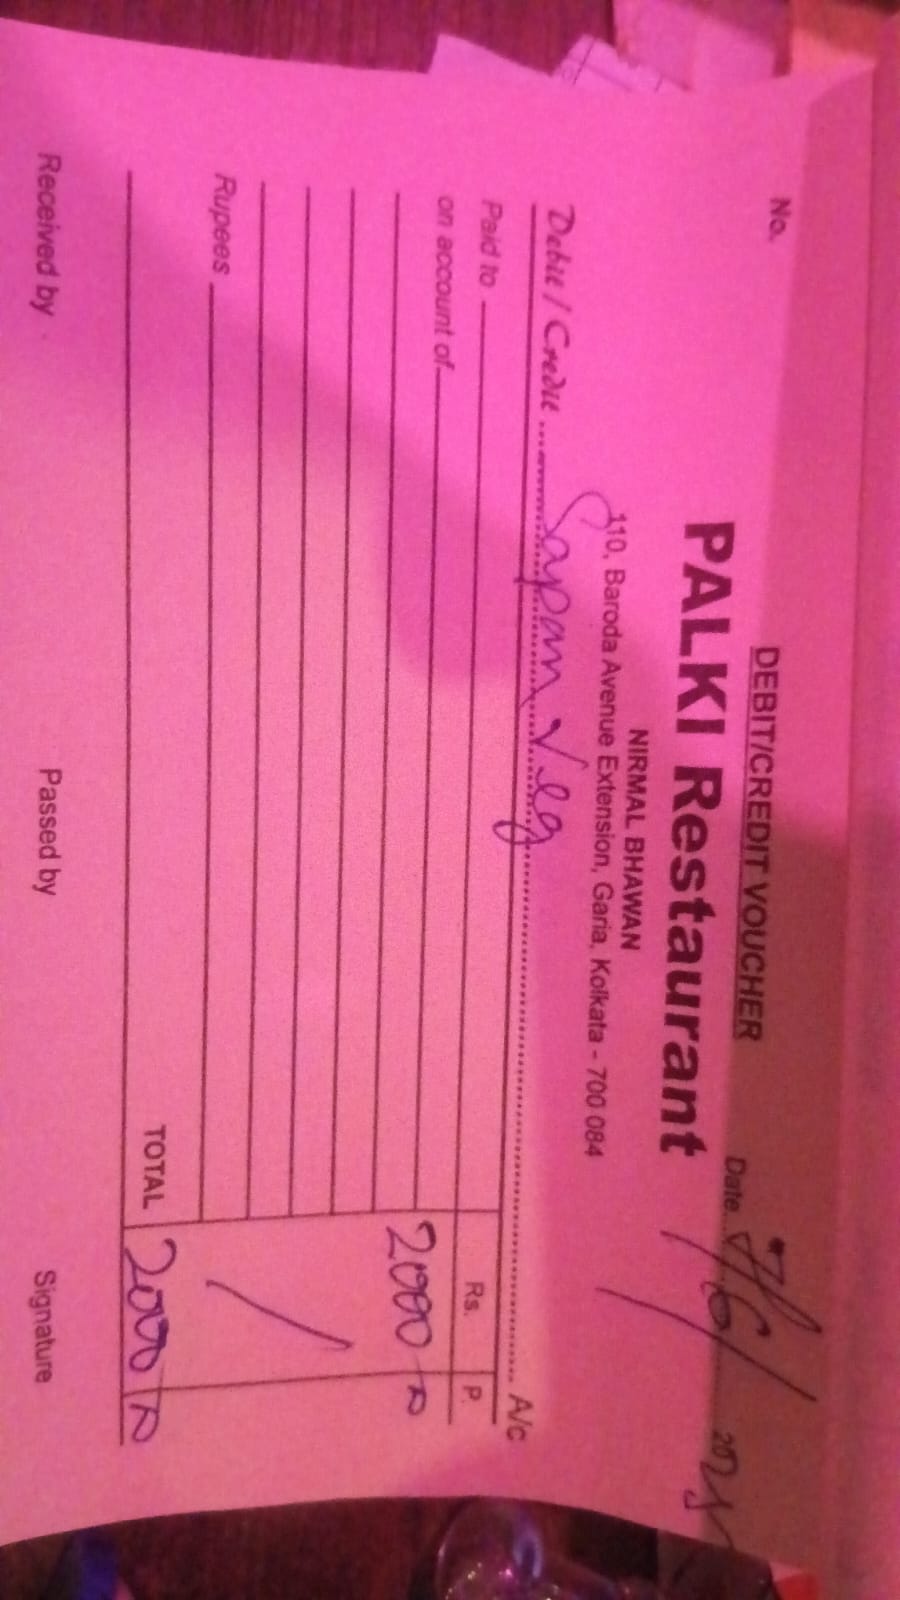 DEBIT/CREDIT VOUCHER
No. Date 7/6/ 2025
PALKI Restaurant
NIRMAL BHAWAN
110, Baroda Avenue Extension, Garia, Kolkata - 700 084
Debit / Credit Sapan Veg A/c
Paid to Rs. P.
on account of
2000
Rupees
TOTAL 2000
Received by Passed by Signature